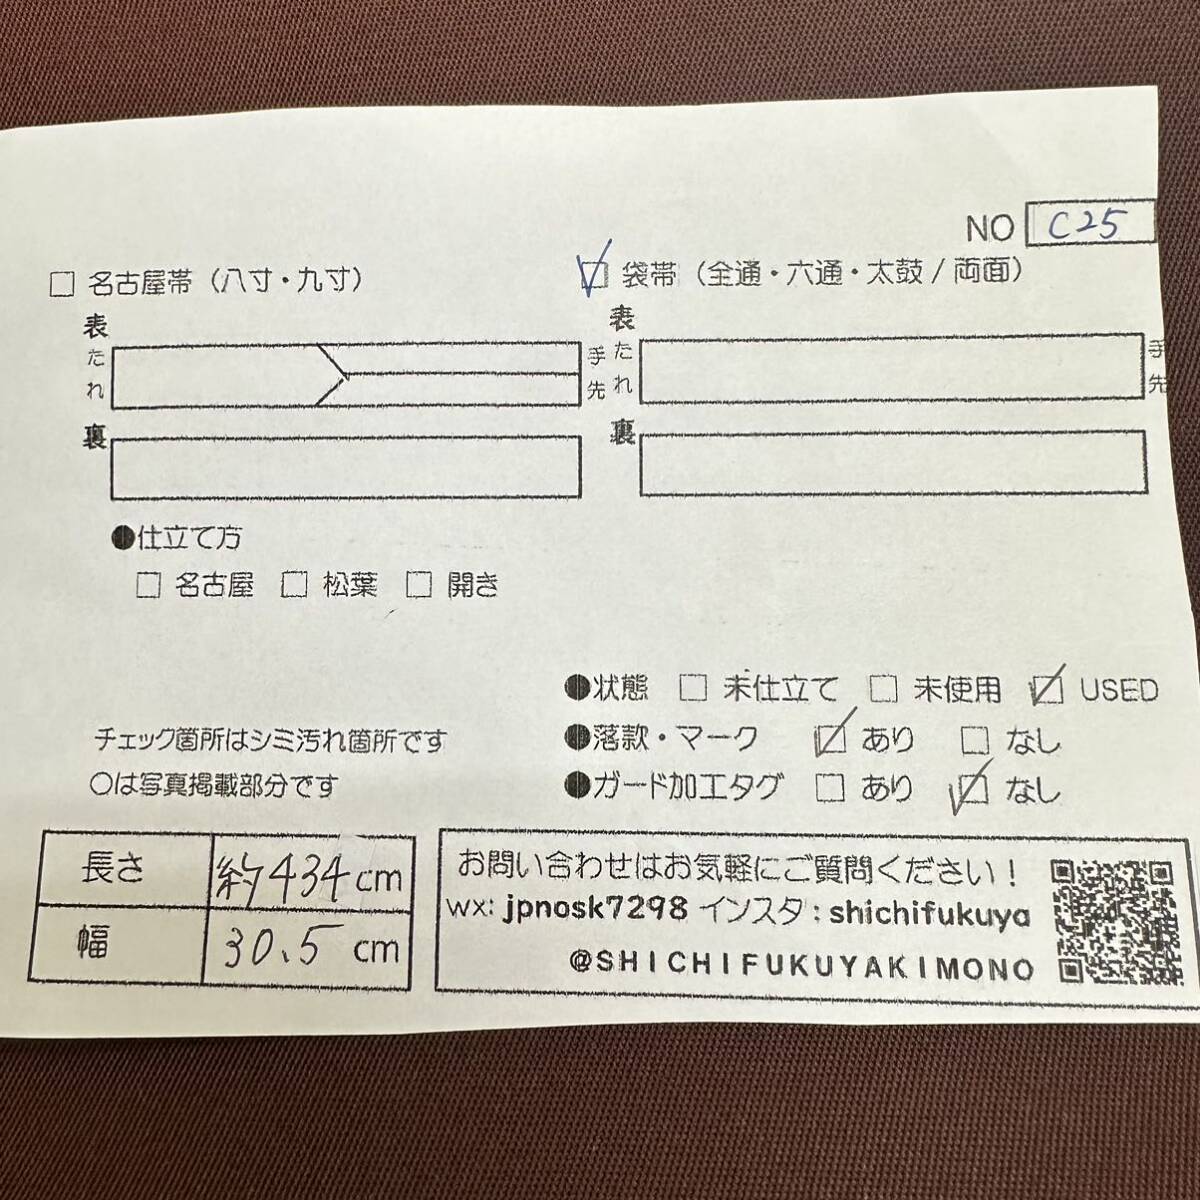 NO C25
□ 名古屋帯（八寸・九寸）
☑ 袋帯（全通・六通・太鼓/両面）
表
たれ
手先
裏
表
たれ
手先
裏
●仕立て方
□ 名古屋 □ 松葉 □ 開き
●状態 □ 未仕立て □ 未使用 ☑ USED
●落款・マーク ☑ あり □ なし
●ガード加工タグ □ あり ☑ なし
チェック箇所はシミ汚れ箇所です
○は写真掲載部分です
長さ 約434cm
幅 30.5cm
お問い合わせはお気軽にご質問ください！
wx: jpnosk7298 インスタ：shichifukuya
@SHICHIFUKUYAKIMONO